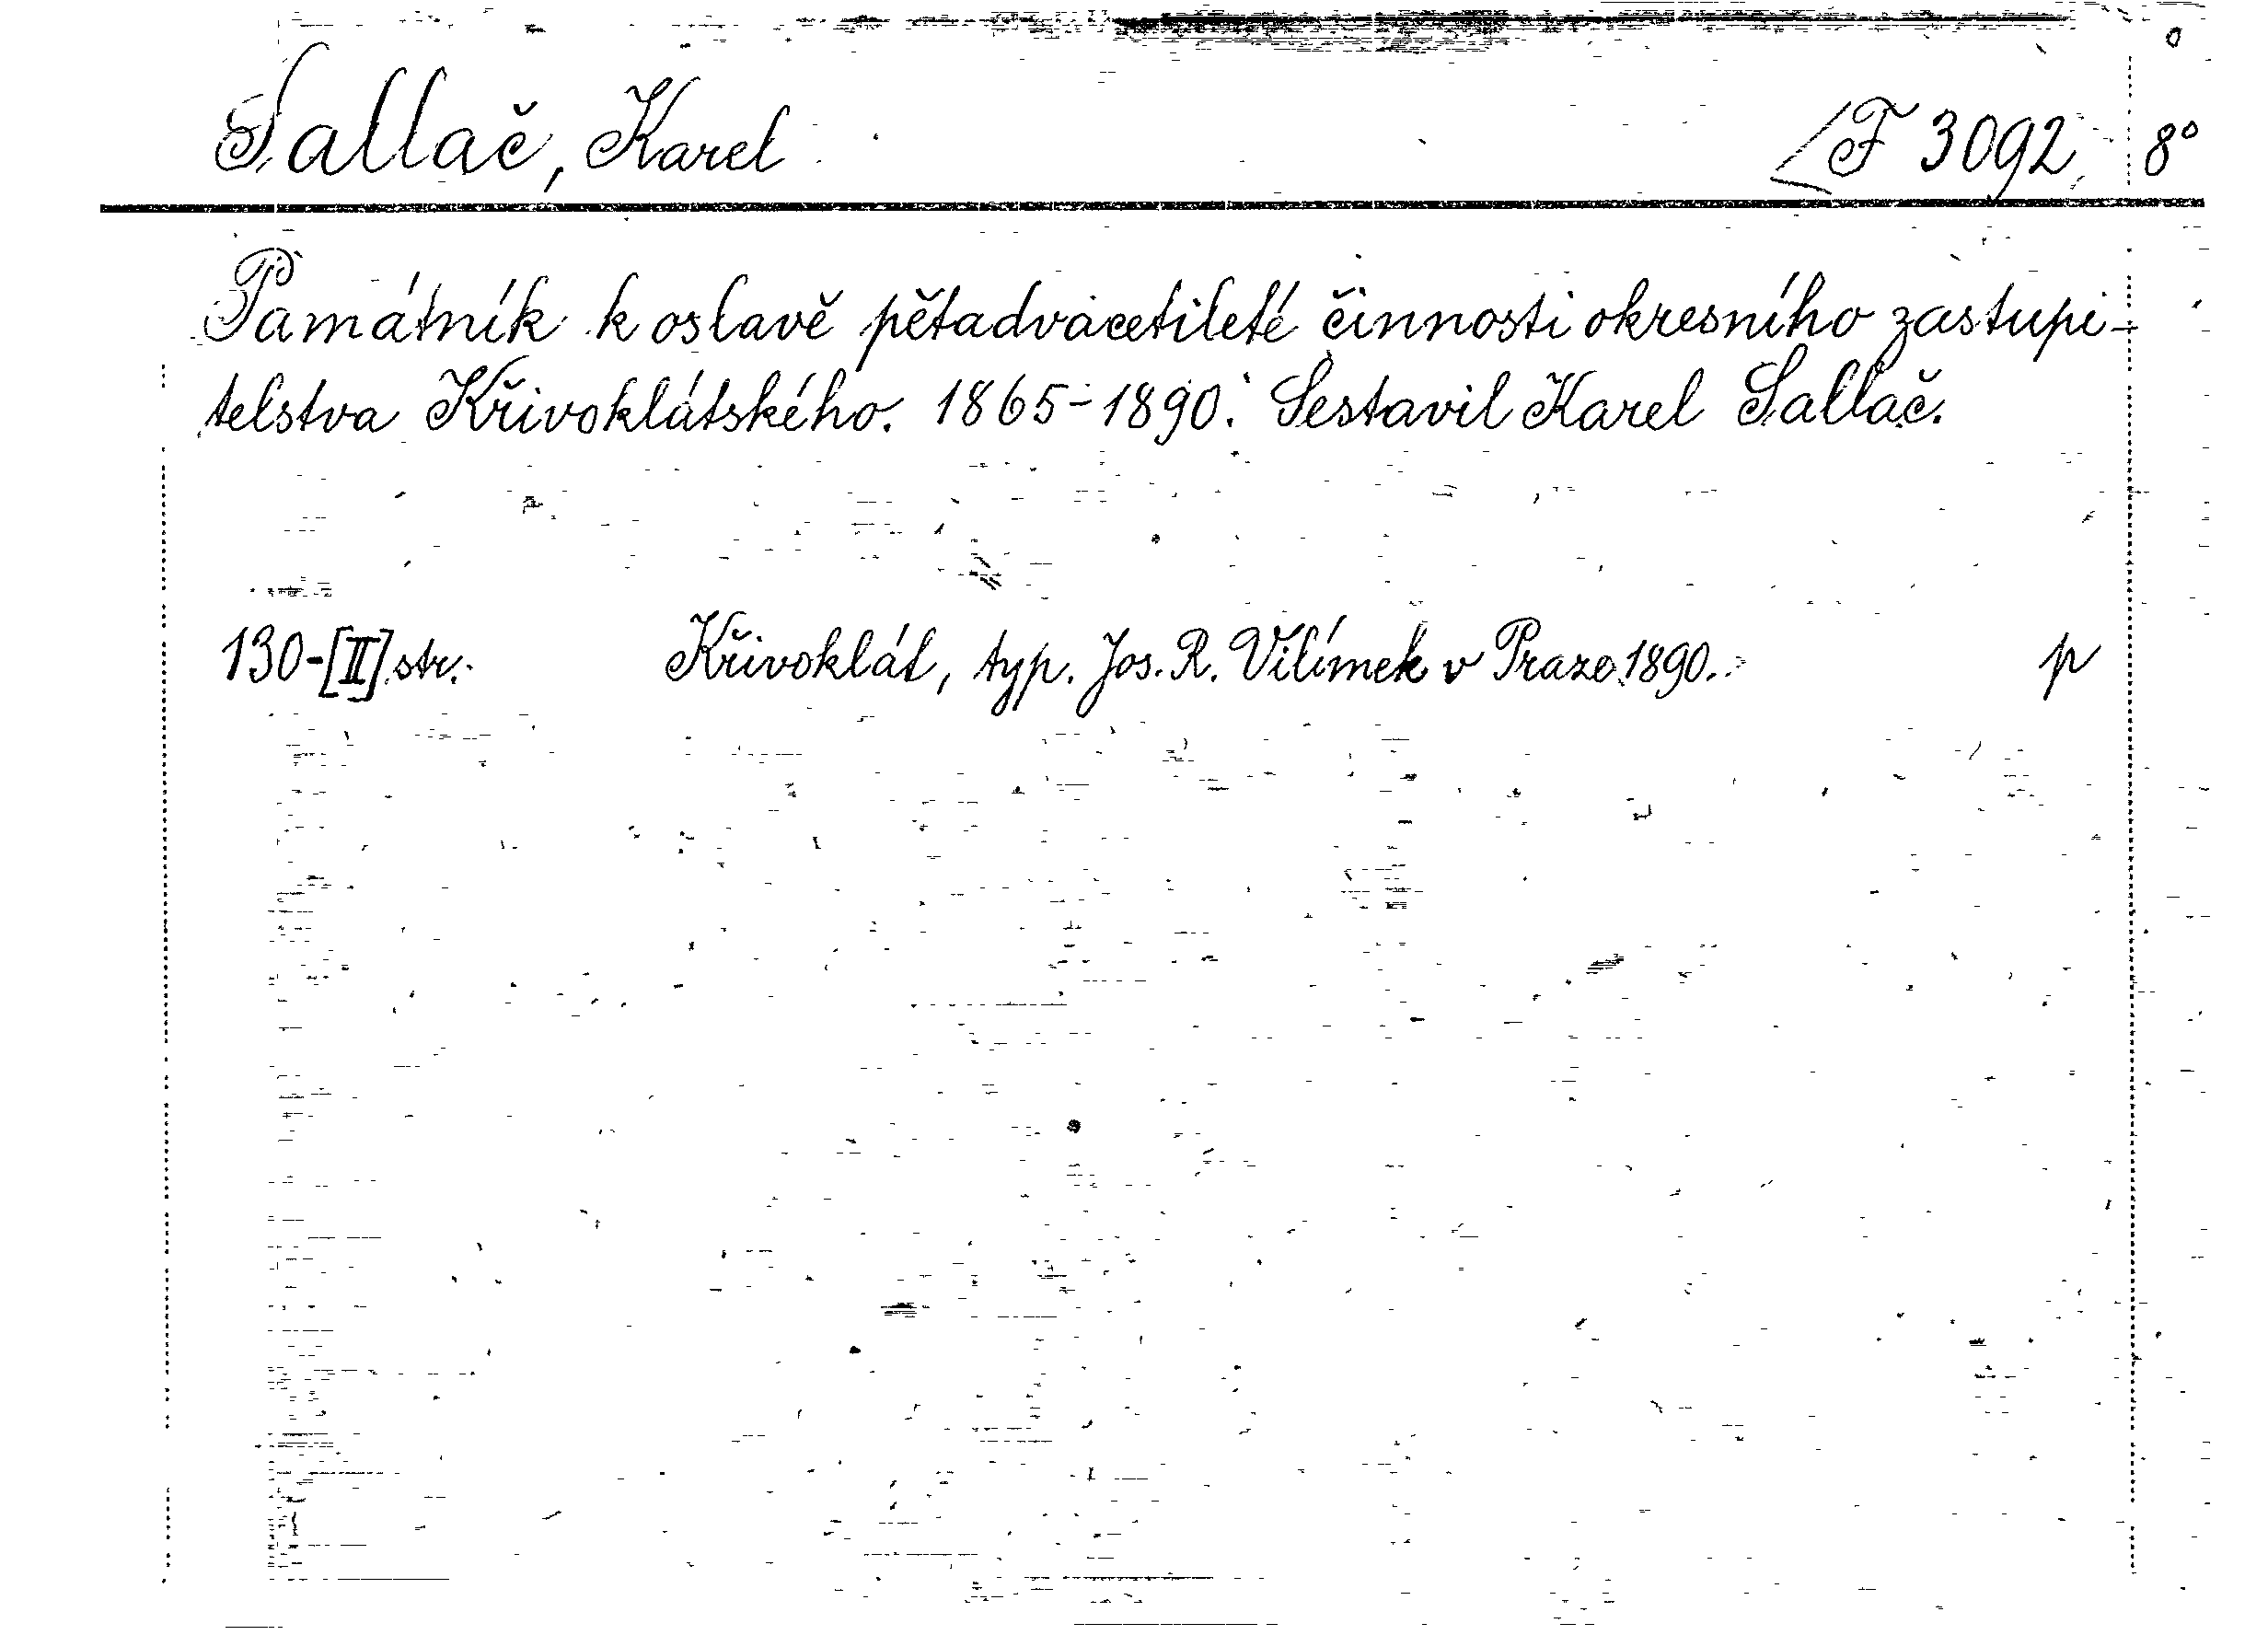 Sallač, Karel F 3092 8°
Památník k oslavě pětadvacetileté činnosti okresního zastupi-
telstva Křivoklátského. 1865-1890. Sestavil Karel Sallač.
130-[II] str. Křivoklát, typ. Jos. R. Vilímek v Praze 1890. p